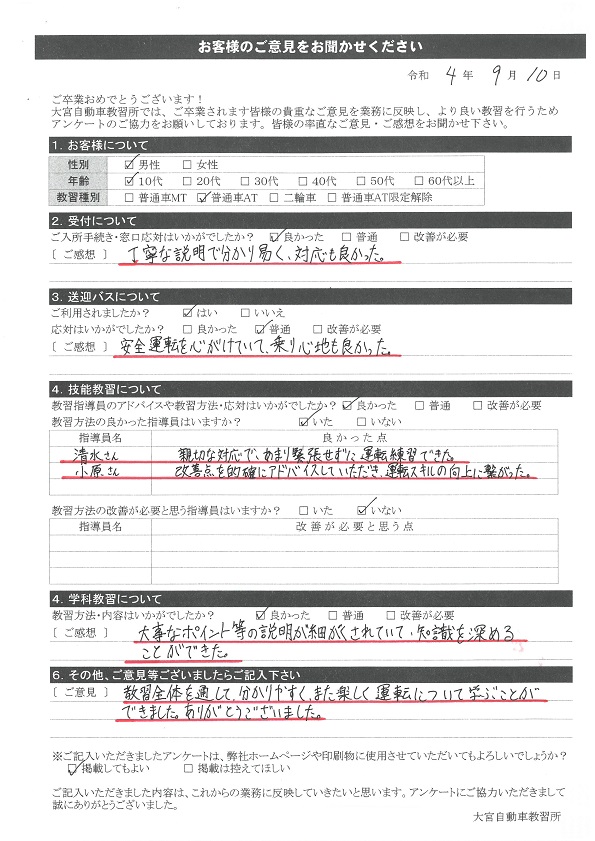 お客様のご意見をお聞かせください
令和 4 年 9 月 10 日
ご卒業おめでとうございます！
大宮自動車教習所では、ご卒業されます皆様の貴重なご意見を業務に反映し、より良い教習を行うため
アンケートのご協力をお願いしております。皆様の率直なご意見・ご感想をお聞かせ下さい。
1. お客様について
性別 ☑ 男性 □ 女性
年齢 ☑ 10代 □ 20代 □ 30代 □ 40代 □ 50代 □ 60代以上
教習種別 □ 普通車MT ☑ 普通車AT □ 二輪車 □ 普通車AT限定解除
2. 受付について
ご入所手続き・窓口応対はいかがでしたか？ ☑ 良かった □ 普通 □ 改善が必要
〔 ご感想 〕 丁寧な説明で分かり易く、対応も良かった。
3. 送迎バスについて
ご利用されましたか？ ☑ はい □ いいえ
応対はいかがでしたか？ □ 良かった ☑ 普通 □ 改善が必要
〔 ご感想 〕 安全運転を心がけていて、乗り心地も良かった。
4. 技能教習について
教習指導員のアドバイスや教習方法・応対はいかがでしたか？ ☑ 良かった □ 普通 □ 改善が必要
教習方法の良かった指導員はいますか？ ☑ いた □ いない
指導員名 良かった点
清水さん 親切な対応で、あまり緊張せずに運転練習できた。
小原さん 改善点を的確にアドバイスしていただき、運転スキルの向上に繋がった。
教習方法の改善が必要と思う指導員はいますか？ □ いた ☑ いない
指導員名 改善が必要と思う点
4. 学科教習について
教習方法・内容はいかがでしたか？ ☑ 良かった □ 普通 □ 改善が必要
〔 ご感想 〕 大事なポイント等の説明が細かくされていて、知識を深める
ことができた。
6. その他、ご意見等ございましたらご記入下さい
〔 ご意見 〕 教習全体を通して、分かりやすく、また楽しく運転について学ぶことが
できました。ありがとうございました。
※ご記入いただきましたアンケートは、弊社ホームページや印刷物に使用させていただいてもよろしいでしょうか？
☑ 掲載してもよい □ 掲載は控えてほしい
ご記入いただきました内容は、これからの業務に反映していきたいと思います。アンケートにご協力いただきまして
誠にありがとうございました。
大宮自動車教習所